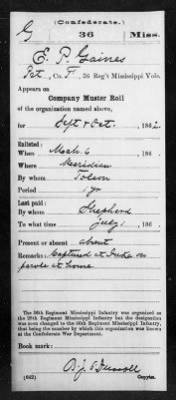 (Confederate.)
G 36 Miss.
E. P. Gaines
Pvt, Co. F, 36 Reg't Mississippi Vols.
Appears on
Company Muster Roll
of the organization named above,
for Sept & Oct. , 1862.
Enlisted:
When Mch. 6 , 186 .
Where Meridian
By whom
Period 1 yr
Last paid:
By whom Shepherd
To what time July 1 , 186 .
Present or absent absent
Remarks: Captured at Iuka on
parole at home
The 36th Regiment Mississippi Infantry was organized as
the 25th Regiment Mississippi Infantry but the designation
was soon changed to the 36th Regiment Mississippi Infantry,
that being the number by which it was known at
the Confederate War Department.
Book mark:
(642) Copyist.